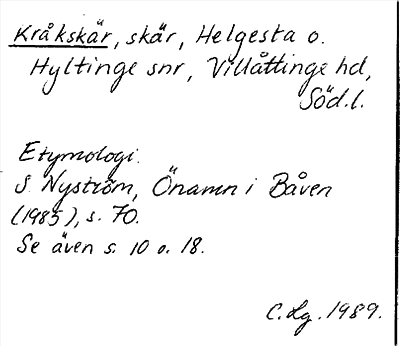 Kråkskär, skär, Helgesta o.
Hyltinge snr, Villåttinge hd,
Söd.l.
Etymologi.
S. Nyström, Önamn i Båven
(1985), s. 70.
Se även s. 10 o. 18.
C. Lg. 1989.